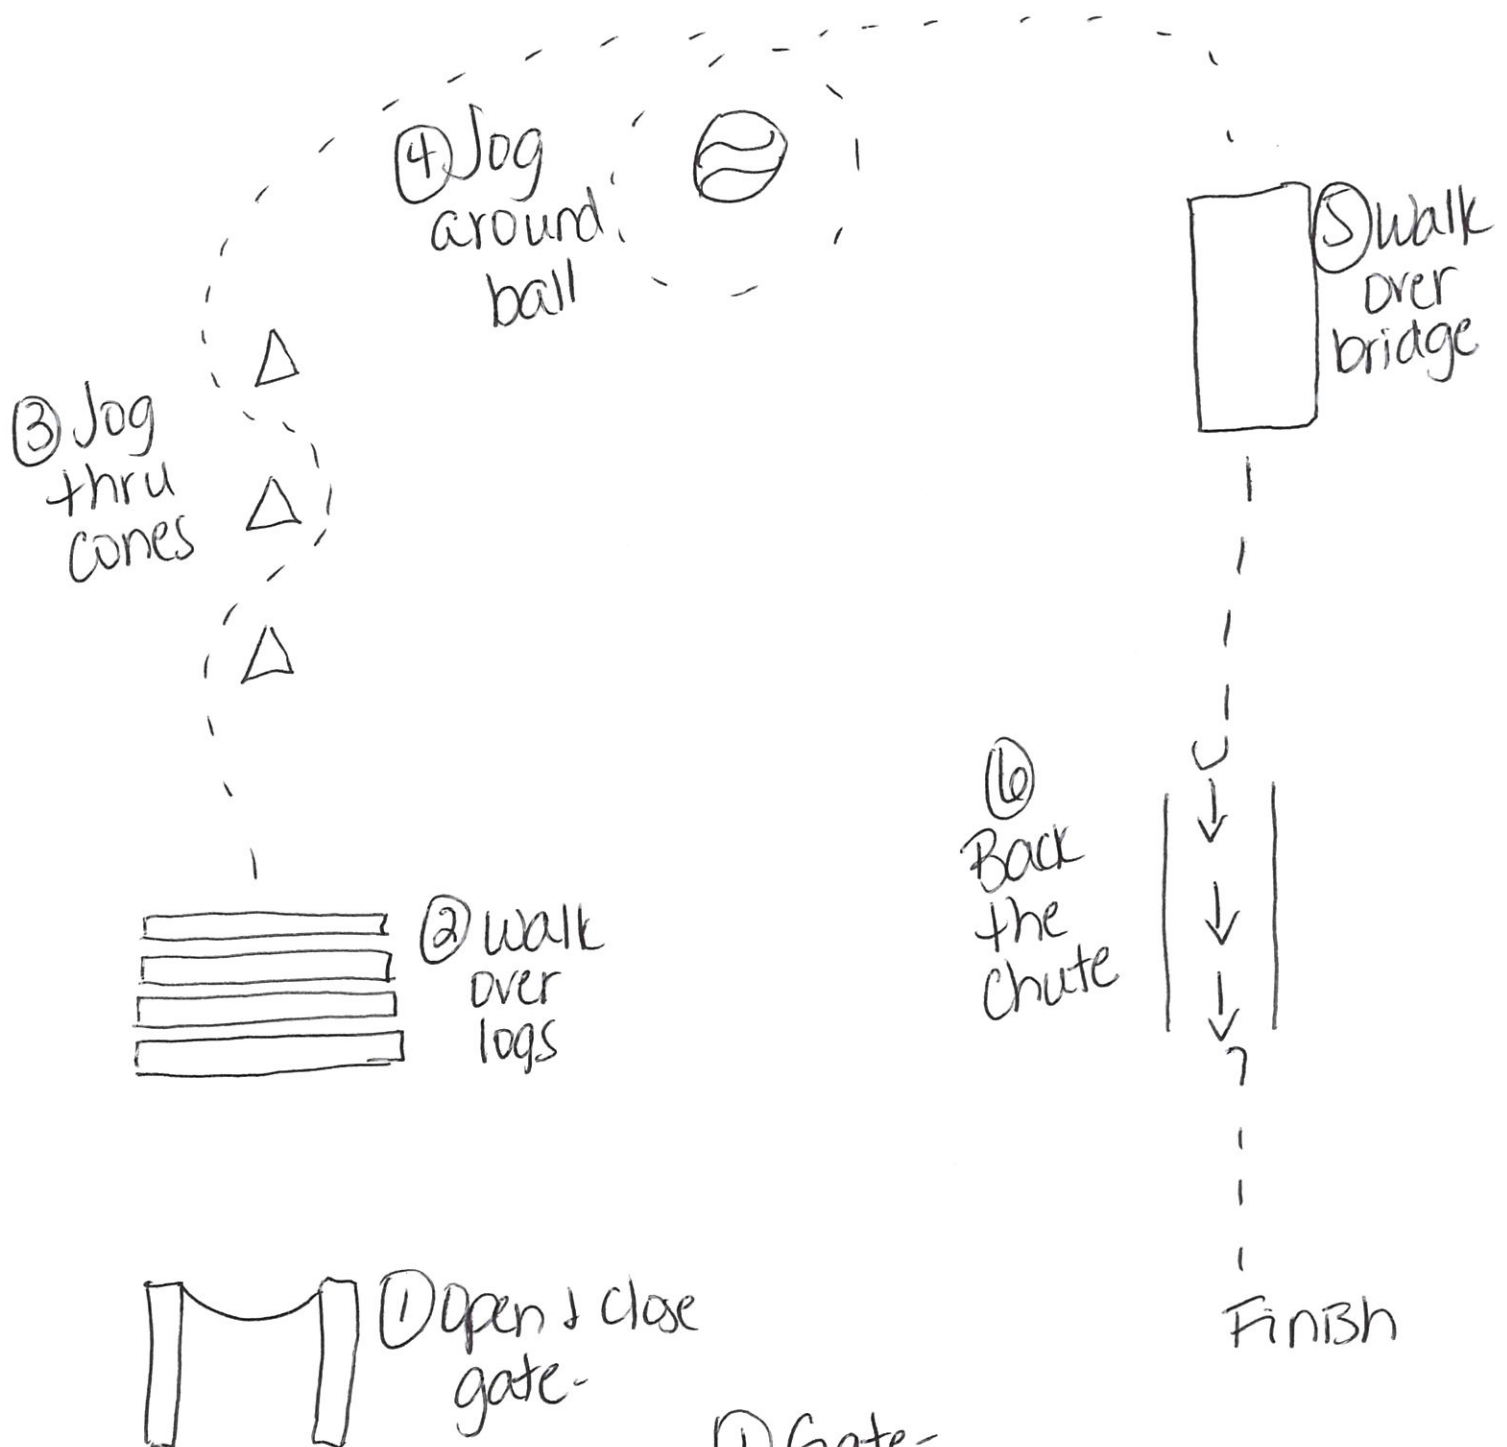 ④ Jog
around
ball
⑤ Walk
over
bridge
③ Jog
thru
cones
⑥
Back
the
Chute
② Walk
over
logs
① Open & Close
gate-
Finish
① Gate-